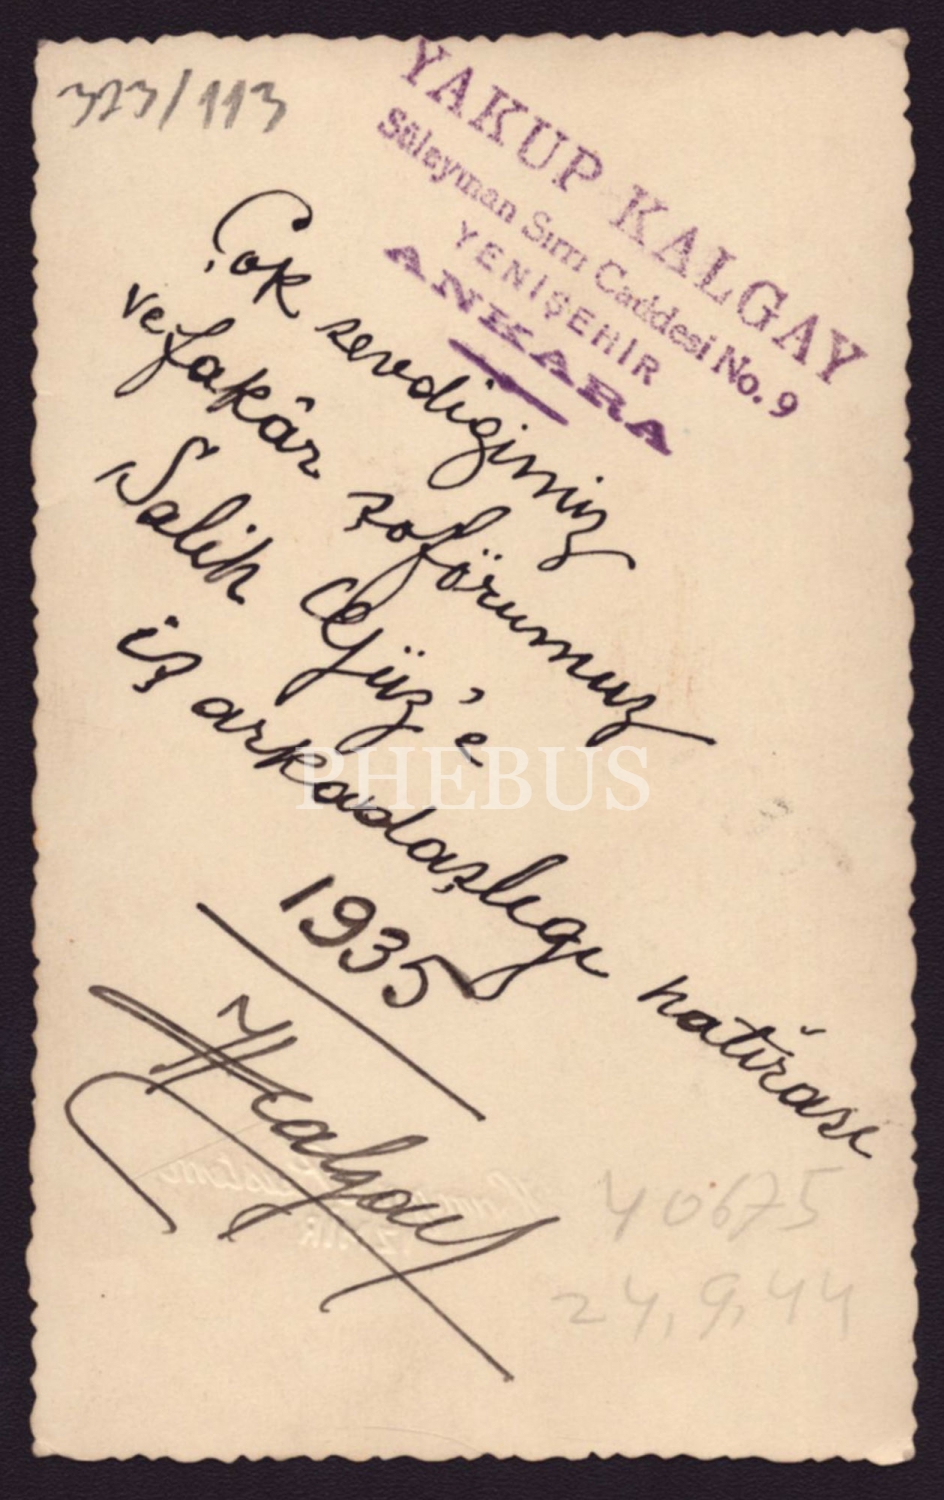 323/113
YAKUP KALGAY
Süleyman Sırrı Caddesi No. 9
YENİŞEHİR
ANKARA
Çok sevdiğimiz
vefakâr şoförümuz
Salih
iş arkadaşlığı hatırası
1935
PHEBUS
40675
24.9.44